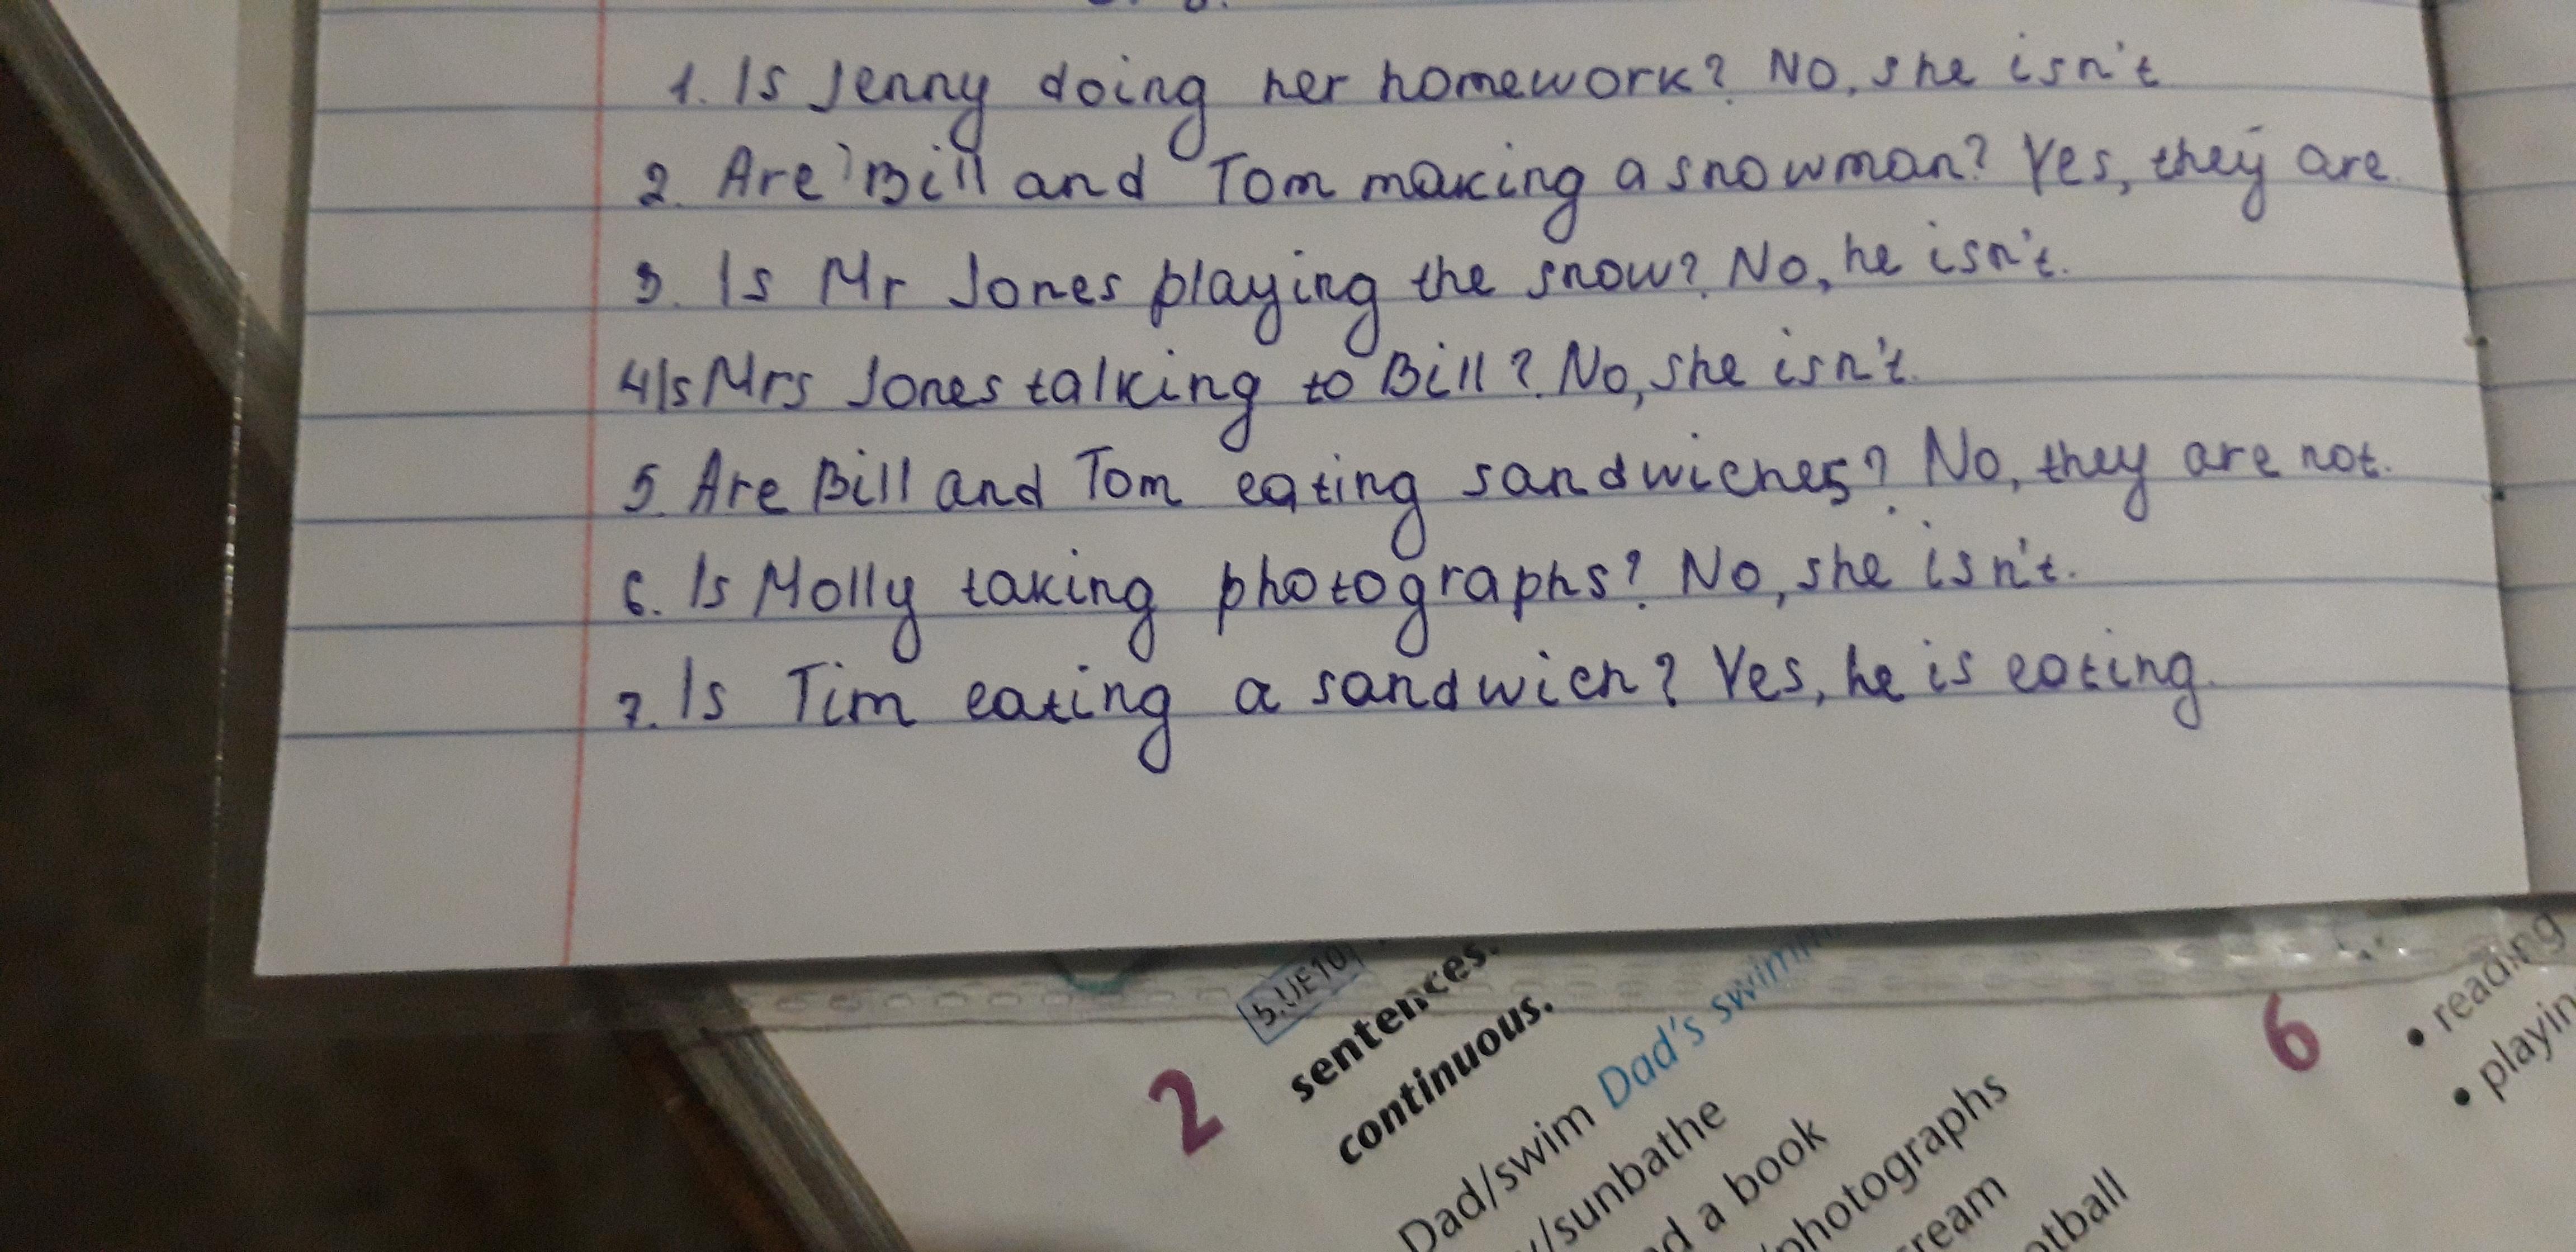 1. Is Jenny doing her homework? No, she isn't
2. Are Bill and Tom making a snowman? Yes, they are.
3. Is Mr Jones playing the snow? No, he isn't.
4 Is Mrs Jones talking to Bill? No, she isn't.
5. Are Bill and Tom eating sandwiches? No, they are not.
6. Is Molly taking photographs? No, she isn't.
7. Is Tim eating a sandwich? Yes, he is eating.
5.UE10
2 sentences.
continuous.
Dad/swim Dad's swimm
/sunbathe
d a book
/photographs
ream
otball
6
• reading
• playin